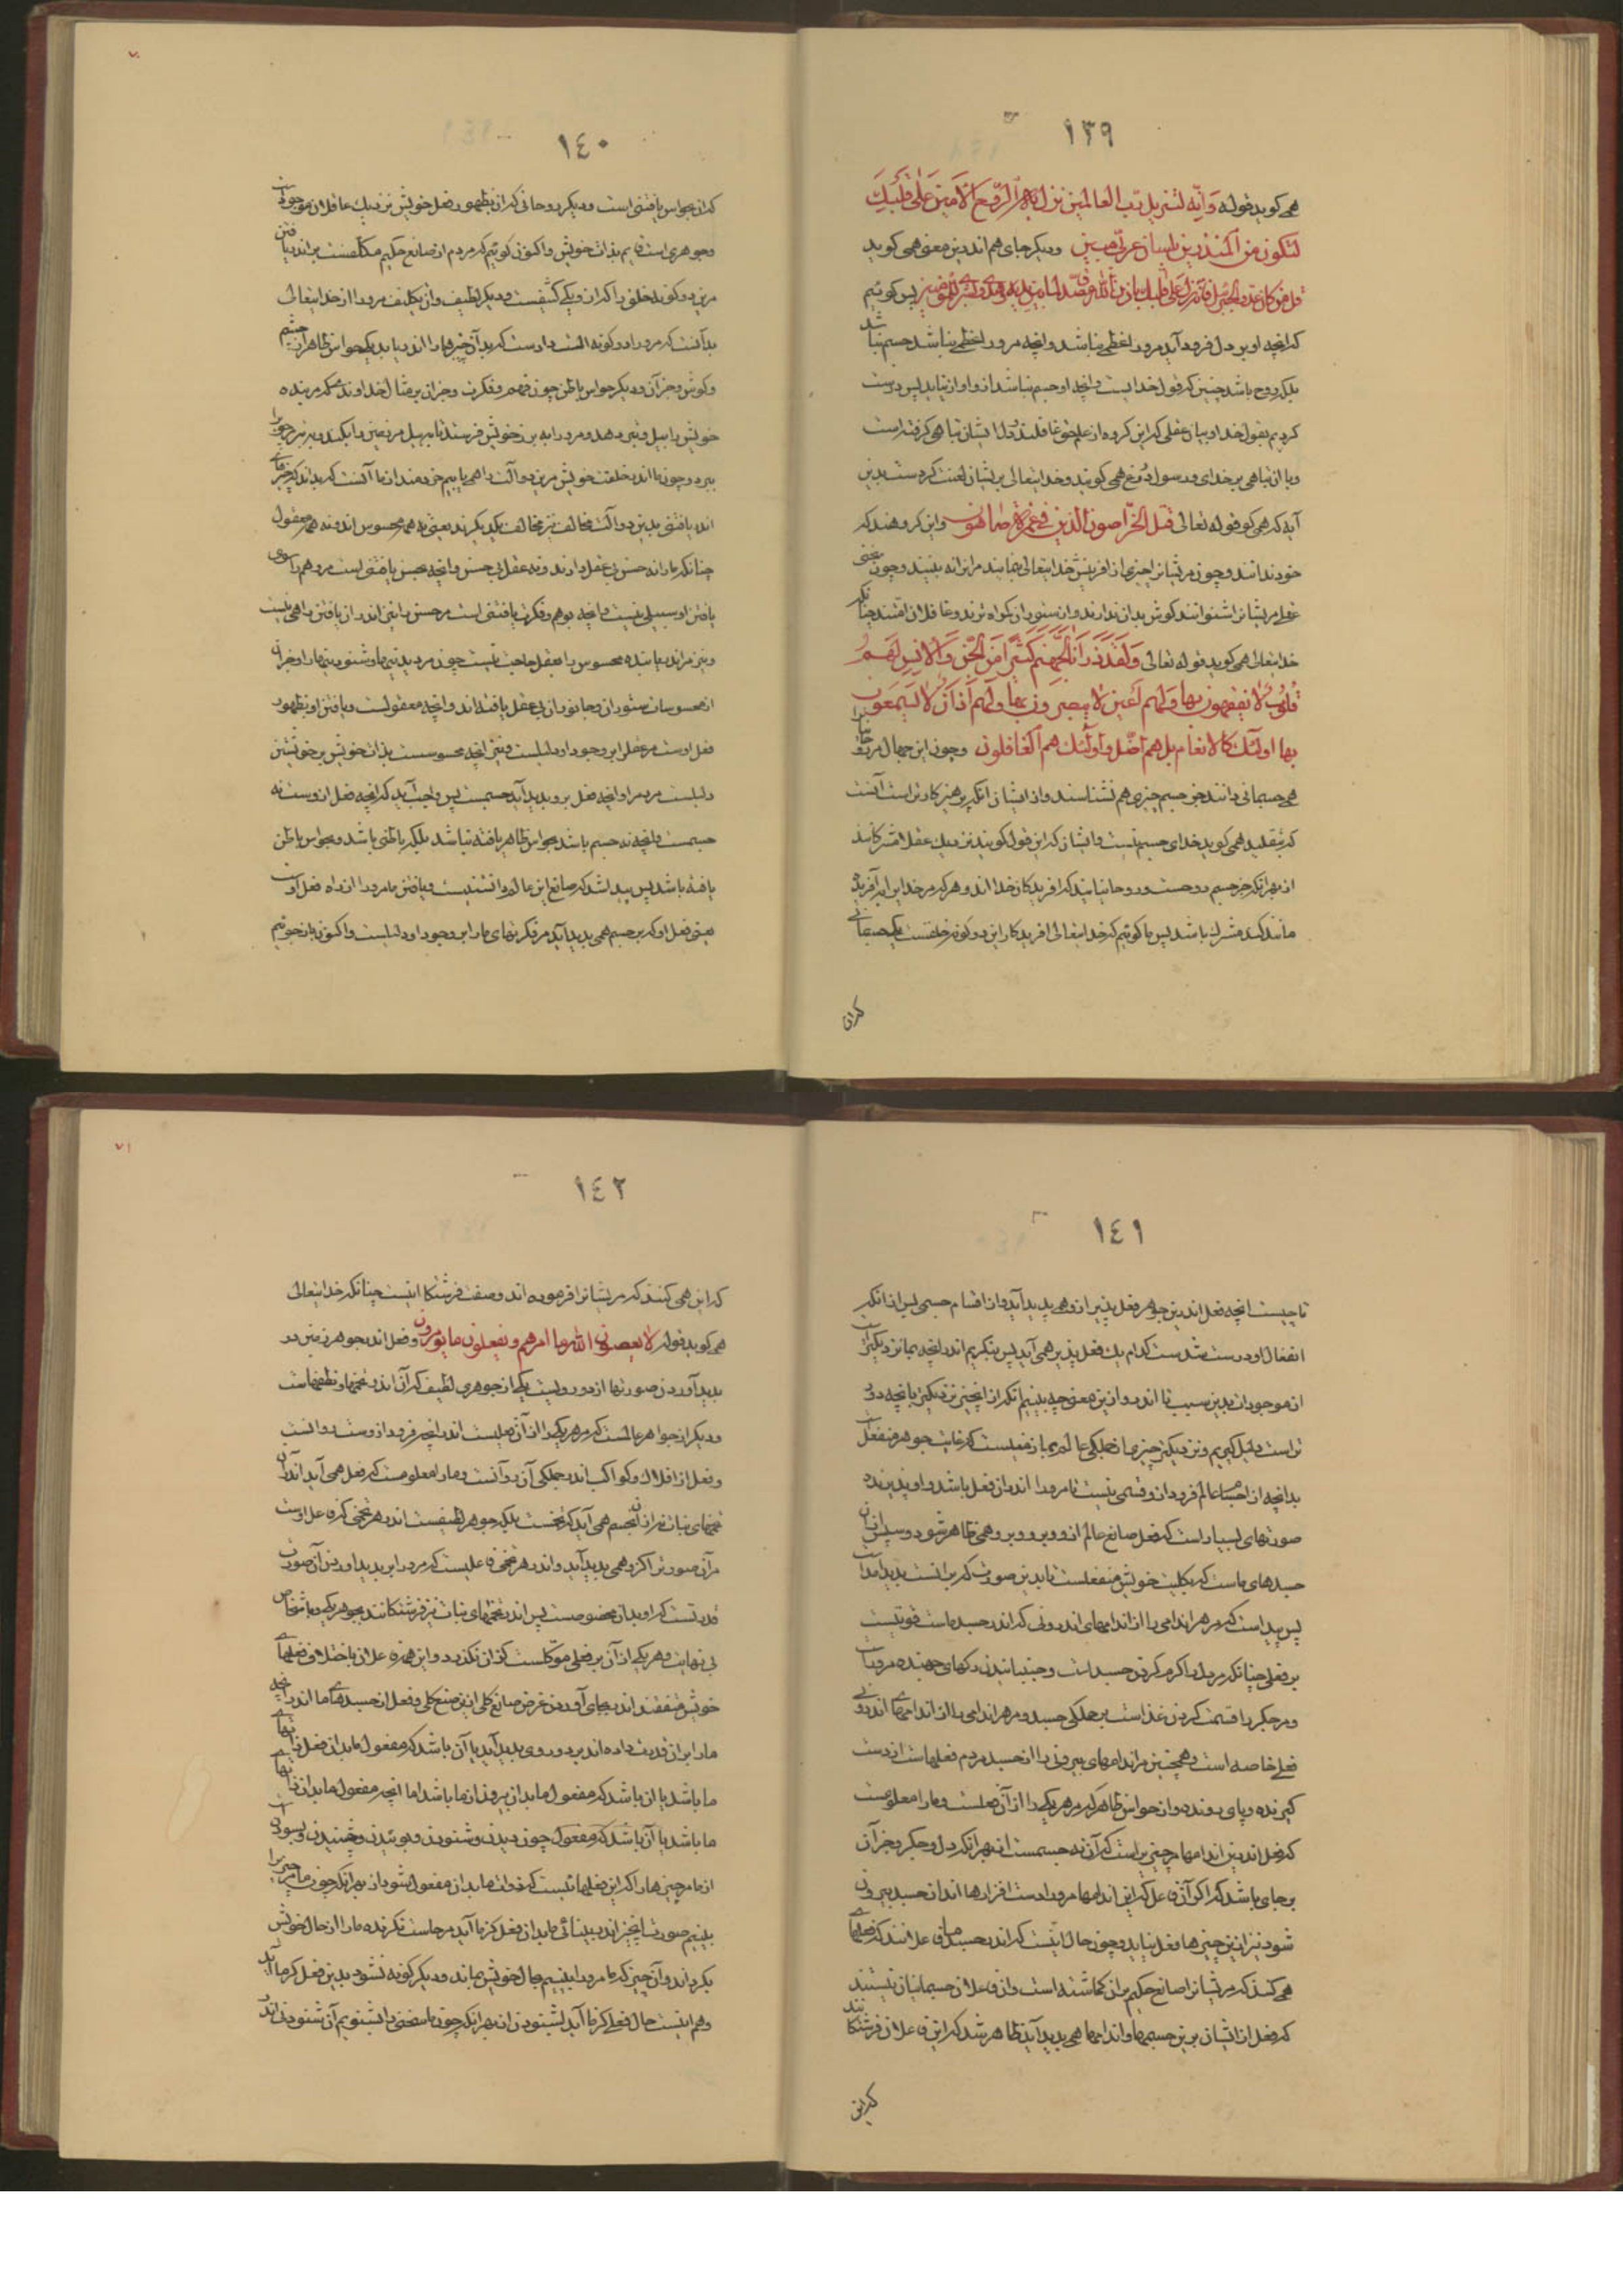 ١٣٩
همی کوید قوله وَاِنّه لتنزیل رَبّ العالمین نزل به الرّوح الاَمین عَلی قَلبِكَ
لتکون من المنذرین بلسان عربیّ مبین ودیکر جای هم اندرین معنی همی کوید
قل من کان عدوا لجبریل فانه نزله علی قلبك باذن الله مصدقا لما بین یدیه وهدی وبشری للمؤمنین پس کوئیم
که انچه او بر دل فرود آید مرورا لفظی نباشد وانچه مرورا لفظی نباشد جسم نباشد
بلکه روح باشد چنین که قول خدایست وانچه او جسم نباشد ازو اواز نیاید پس درست
کردیم بقول خدا وبیان عقلی که این کروه از علم حق غافلند ودل ایشان تباهی کرفته است
وبا این تباهی بر خدای ورسول دروغ همی کویند وخدایتعالی بریشان لعنت کردست بدین
آیه که همی کوید قوله تعالی قتل الخرّاصون الذین هم فی غمرة ساهون واین کروهند که
خود ندانند وچون مریشانرا چیزی از افرینش خدایتعالی بنمایند مرانرا نه بینند وچون سخنی
عقلی مریشانرا شنوانند کوش بدان ندارند وازستوران کواه‌ترند وغافلان افتند چنانکه
خدایتعالی همی کوید قوله تعالی وَلَقَد ذَرَأنا لجهنّم کثیرًا مِنَ الجنّ وَالانِسِ لَهُم
قُلُوبٌ لا یفقهون بها ولهم اَعین لا یبصرون بها ولهم آذان لا یسمعون
بها اولئك کالانعام بل هم اضل واولئك هم الغافلون وچون این جهال مر روحانیانرا
همی جسمانی دانند جز جسم چیزی هم نشناسند واز ایشان انکه پرهیز کارتر است آنست
که بتقلید همی کوید خدای جسم نیست وایشان که این قول کویند نزدیك عقلا مشرکانند
از بهر انکه جز جسم روحست وروحانیانند که افریدکان خدا اند وهر که مر خدایرا به آفریده
مانند کند مشرك باشد پس ما کوئیم که خدایتعالی افریدکار این دو کونه خلقست یکی جسمانی
که ان
١٤٠
که ان بحواس یافتنی است ودیکر روحانی که ان بظهور فعل خویش نزدیك عاقلان موجودست
وجوهری است قایم بذات خویش واکنون کوئیم که مردم از صانع حکیم مکلّفست بر اندر یافتن
مرین دو کونه خلق را که ازو یکی کثیفست ودیکر لطیف واین تکلیف مرورا از خدایتعالی
بدآنست که مرورا دو کونه الت دادست که بدان چیزها را اندر یابد یکی حواس ظاهر از چشم
وکوش وجز آن ودیکر حواس باطن چون فهم وفکرت وجز ان بر مثال خداوندی که مر بنده
خویش را بیل وتبر دهد ومرورا به رز خویش فرستد تا به بیل مر زمین را بکند وبه تبر چوب را
ببرد وچون ما اندر خلقت خویش مرین دو آلت را همی یابیم خردمند از ما آنست که بداند که چیزهای
اندر یافتنی بدین دو آلت مخالف نیز مخالف یکدیکرند یعنی نه همه محسوس اند ونه همه معقول
چنانکه ما را نه حسّ بی عقل دادند ونه عقل بی حسّ وانچه بحس یافتنی است مر وهم را سوی
یافتن او سبیلی نیست وانچه بوهم وفکرت یافتنی است مر حسّ را نیز اندر ان یافتن راهی نیست
ونیز مراندر یابنده محسوس را بعقل حاجت نیست چون مر دیدنیها وشنودنیها را وجز ان
از محسوسات ستوران وجانوران بی عقل یافته‌اند وانچه معقولست ویافتن او بظهور
فعل اوست مر عقل را بر وجود او دلیلست ونیز انچه محسوسست بذات خویش بر خویشتن
دلیلست مر مرد را وانچه فعل برو پدید آید جسمست پس واجب آید که انچه فعل ازوست نه
جسمست وانچه نه جسم باشد بحواس ظاهر یافته نباشد بلکه باطنی باشد وبحواس باطن
یافته باشد پس پیدا شد که صانع این عالم دانستنیست ویافتن ما مرورا از راه فعل اوست
یعنی فعل او که بر جسم همی پدید آید مر فکرتهای ما را بر وجود او دلیلست واکنون باز جوئیم
١٤١
تا چیست انچه فعل اندرین جوهر فعل پذیر ازو همی پدید آید واز اقسام جسمی پس ازانکه
انفعال او درست شدست کدام یك فعل پذیر همی آید پس بنکریم اندر انچه بما نزدیکترست
از موجودات بدین سبیب تا اندرو ازین معنی چه بینیم انکه از انچیز نزدیکتر بانچه دور
تر است دلیل کیریم ونزدیکتر چیزی ما از جملکی عالم بما نفسیست که غایت جوهر منفعلست
بدانچه از اجسام عالم فرود ازو قسمی نیست تا مرورا اندران فعل باشد واو پذیرنده
صورتهای بسیار است که فعل صانع عالم ازو وبرو وبدو همی ظاهر شود وسپس ازان
جسدهای ماست که بکلیت خویش منفعلست تا بدین صورت که بر انست پدید آمدست
پس پیداست که مر هر اندامی را از اندامهای اندرونی که اندر جسد ماست قوتیست
بر فعلی چنانکه مر دل را کرم کردن جسداست وجنبانیدن رکهای جهنده مروراست
ومر جکر را قسمت کردن غذاست بر جملکی جسد ومر هر اندامی را از اندامهای اندرونی
فعلی خاصه است وهمچنین مر اندامهای بیرونی را از جسد مردم فعلهاست از دست
کیرنده وپای رونده واز حواس ظاهر که مر هر یکی را از آن فعلست وما را معلومست
که فعل اندرین اندامها مر چیزیراست که آن نه جسمست از بهر انکه دل وجکر وجز آن
بر جای باشد که اکر آن فاعل که این اندامها مرورا دست افزارها اند از جسد بیرون
شود نیز ازین چیزها فعل نیاید وچون حال اینست که اندر جسد ما فاعلانند که فعلها
همی کنند که مریشانرا صانع حکیم بران کماشته است واین فاعلان جسمانیان نیستند
که فعل از ایشان برین جسمها واندامها همی پدید آید ظاهر شد که این فاعلان فرشتکانند
که این
١٤٢
که این همی کنند که مریشانرا فرموده‌اند وصفت فرشتکان اینست چنانکه خدایتعالی
همی کوید قوله لا یعصون الله ما امرهم ویفعلون ما یؤمرون وفعل اندر جوهر زمین در
پدید آوردن صورتها ازدو رویست یکی از جوهری لطیف که آن اندر تخمها ونطفهاست
ودیکر از جواهر عالمست که مر هر یکی را از آن فعلیست اندر انچه فرود ازوست دوانست
وفعل از افلاك وکواکب اندر جملکی آن روآنست وما را معلومست که فعل همی آید اندران
تخمهای نبات نه از ان جسم همی آید که تخمست بلکه جوهر لطیفست اندر هر تخمی که فاعل اوست
مران صورترا کزو همی پدید آید واندر هر تخمی فاعلیست که مرورا بر پدید اوردن آن صورت
قدرتست که او بدان مخصوصست پس اندر تخمهای نبات نیز فرشتکانند بجوهر یکی وباشخاص
بی نهایت وهر یکی از آن بر فعلی موکلست کز ان نکذرد واین همه فاعلان باختلاف فعلهای
خویش متفقند اندر بجای آوردن غرض صانع کلی ازین صنع کلی وفعل از جسدهای ما اندر انچه
ما را بران قدرت داده اند بر دو روی پدید آید یا آن باشد که مفعول ما بدان فعل نهان
ما باشد یا ان باشد که مفعول ما بدان بیرون از ما باشد اما انچه مفعول ما بدان نهان
ما باشد یا آن باشد که مفعول چون دیدن وشنودن وبوئیدن وچشیدن وبسودن است
از ما مر چیزها را که این فعلهائیست که ذوات ما بدان مفعول شود از بهر انکه چون ما مر چیزی را
ببینیم صورت انچیز اندر بینائی ما بدان فعل کز ما آید مر حاست نکرنده ما را از حال خویش
بکرداند وآن چیز که ما مرورا ببینیم بحال خویش بماند ودیکر کونه نشود بدین فعل کز ما آید
وهم اینست حال فعلی کز ما آید بشنودن از بهر انکه چون ما سخنی را بشنویم آن شنودن اندر